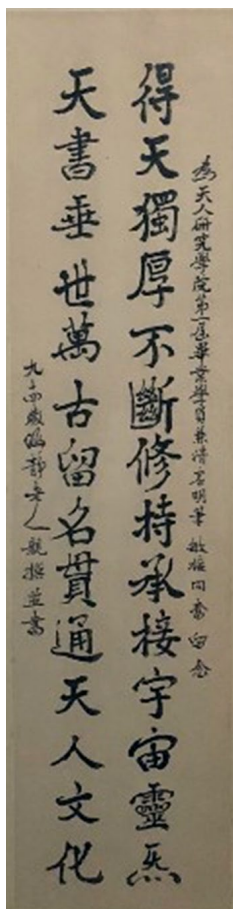 為天人研究學院第一屆畢業學員 同奮 留念
得天獨厚不斷修持承接宇宙靈炁
天書垂世萬古留名貫通天人文化
九十四歲涵靜老人親撰並書